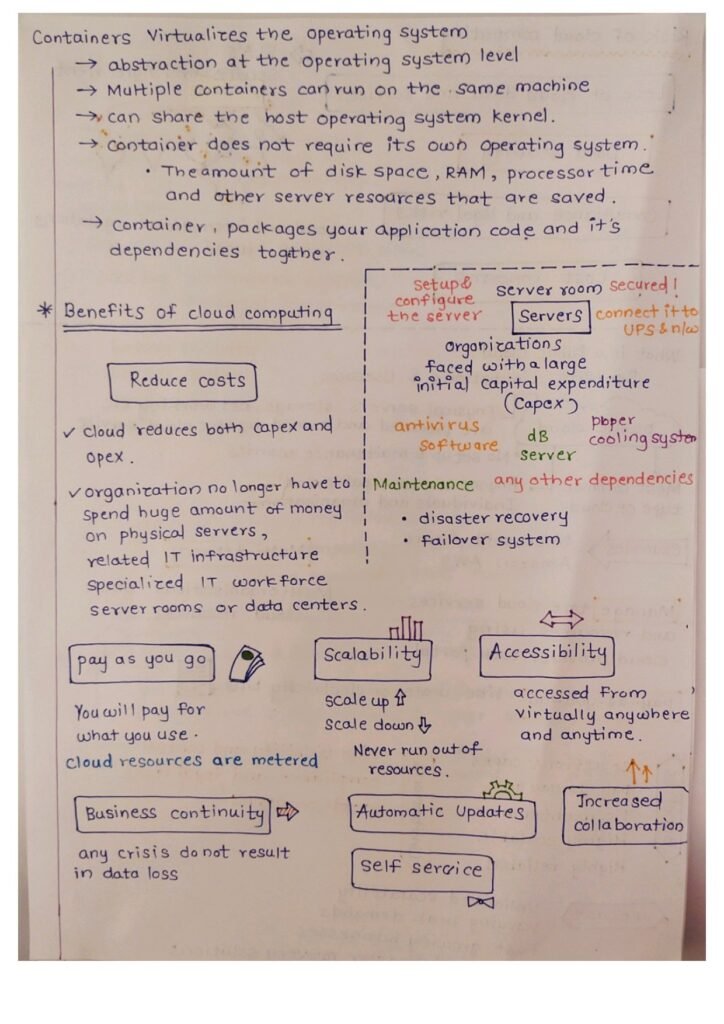 Containers Virtualizes the operating system
→ abstraction at the operating system level
→ Multiple containers can run on the same machine
→ can share the host operating system kernel.
→ container does not require its own operating system.
• The amount of disk space, RAM, processor time
and other server resources that are saved.
→ container, packages your application code and it's
dependencies together.
* Benefits of cloud computing
Reduce costs
✓ cloud reduces both capex and
opex.
✓ organization no longer have to
spend huge amount of money
on physical servers,
related IT infrastructure
specialized IT workforce
server rooms or data centers.
setup &
configure
the server
server room
secured!
Servers
connect it to
UPS & n/w
organizations
faced with a large
initial capital expenditure
(Capex)
antivirus
software
dB
server
cooling system
Maintenance
any other dependencies
• disaster recovery
• failover system
pay as you go
You will pay for
what you use.
cloud resources are metered
Scalability
scale up ⇑
scale down ⇓
Never run out of
resources.
Accessibility
accessed from
virtually anywhere
and anytime.
Business continuity
any crisis do not result
in data loss
Automatic Updates
Self service
Increased
collaboration